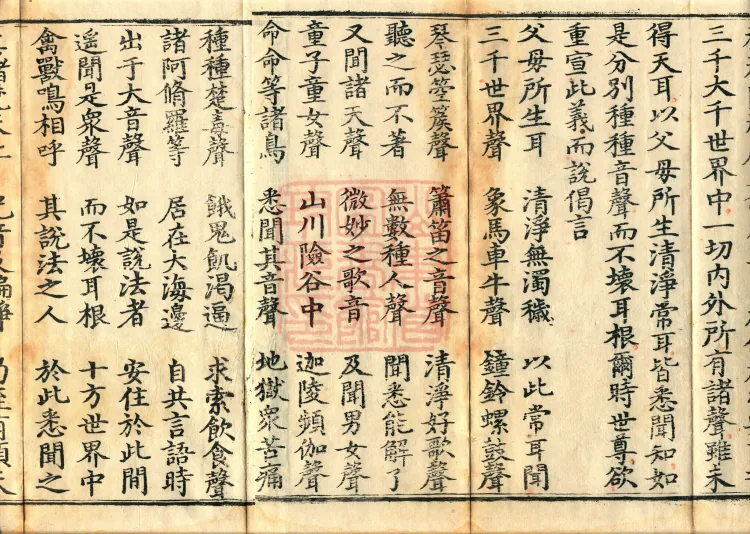 三千大千世界中一切內外所有諸聲雖未
得天耳以父母所生清淨常耳皆悉聞知如
是分別種種音聲而不壞耳根爾時世尊欲
重宣此義而說偈言
父母所生耳 清淨無濁穢 以此常耳聞
三千世界聲 象馬車牛聲 鐘鈴螺鼓聲
琴瑟箜篌聲 簫笛之音聲 清淨好歌聲
聽之而不著 無數種人聲 聞悉能解了
又聞諸天聲 微妙之歌音 及聞男女聲
童子童女聲 山川險谷中 迦陵頻伽聲
命命等諸鳥 悉聞其音聲 地獄衆苦痛
種種楚毒聲 餓鬼飢渴逼 求索飲食聲
諸阿脩羅等 居在大海邊 自共言語時
出于大音聲 如是說法者 安住於此間
遙聞是衆聲 而不壞耳根 十方世界中
禽獸鳴相呼 其說法之人 於此悉聞之